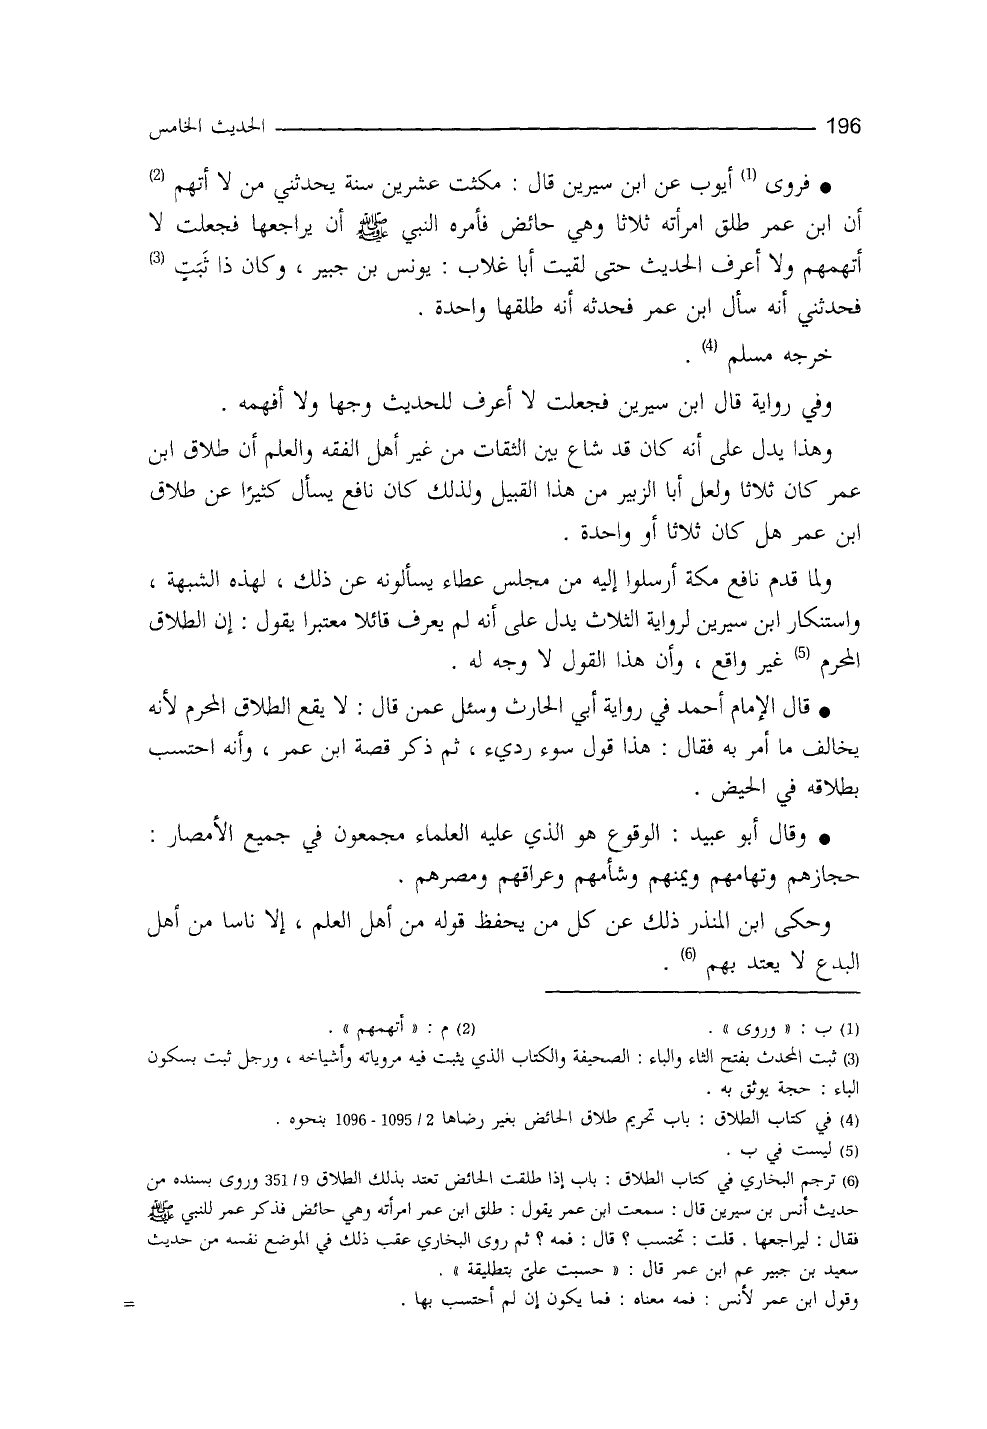 196 الحديث الخامس
● فروى (1) أيوب عن ابن سيرين قال : مكثت عشرين سنة يحدثني من لا أتهم (2)
أن ابن عمر طلق امرأته ثلاثا وهي حائض فأمره النبي ﷺ أن يراجعها فجعلت لا
أتهمهم ولا أعرف الحديث حتى لقيت أبا غلاب : يونس بن جبير ، وكان ذا ثَبَتٍ (3)
فحدثني أنه سأل ابن عمر فحدثه أنه طلقها واحدة .
خرجه مسلم (4) .
وفي رواية قال ابن سيرين فجعلت لا أعرف للحديث وجها ولا أفهمه .
وهذا يدل على أنه كان قد شاع بين الثقات من غير أهل الفقه والعلم أن طلاق ابن
عمر كان ثلاثا ولعل أبا الزبير من هذا القبيل ولذلك كان نافع يسأل كثيرًا عن طلاق
ابن عمر هل كان ثلاثا أو واحدة .
ولما قدم نافع مكة أرسلوا إليه من مجلس عطاء يسألونه عن ذلك ، لهذه الشبهة ،
واستنكار ابن سيرين لرواية الثلاث يدل على أنه لم يعرف قائلا معتبرا يقول : إن الطلاق
المحرم (5) غير واقع ، وأن هذا القول لا وجه له .
● قال الإمام أحمد في رواية أبي الحارث وسئل عمن قال : لا يقع الطلاق المحرم لأنه
يخالف ما أمر به فقال : هذا قول سوء رديء ، ثم ذكر قصة ابن عمر ، وأنه احتسب
بطلاقه في الحيض .
● وقال أبو عبيد : الوقوع هو الذي عليه العلماء مجمعون في جميع الأمصار :
حجازهم وتهامهم ويمنهم وشأمهم وعراقهم ومصرهم .
وحكى ابن المنذر ذلك عن كل من يحفظ قوله من أهل العلم ، إلا ناسا من أهل
البدع لا يعتد بهم (6) .
(1) ب : « وروى » . (2) م : « أتهمهم » .
(3) ثبت المحدث بفتح الثاء والباء : الصحيفة والكتاب الذي يثبت فيه مروياته وأشياخه ، ورجل ثبت بسكون
الباء : حجة يوثق به .
(4) في كتاب الطلاق : باب تحريم طلاق الحائض بغير رضاها 2 / 1095 - 1096 بنحوه .
(5) ليست في ب .
(6) ترجم البخاري في كتاب الطلاق : باب إذا طلقت الحائض تعتد بذلك الطلاق 9 / 351 وروى بسنده من
حديث أنس بن سيرين قال : سمعت ابن عمر يقول : طلق ابن عمر امرأته وهي حائض فذكر عمر للنبي ﷺ
فقال : ليراجعها . قلت : تحتسب ؟ قال : فمه ؟ ثم روى البخاري عقب ذلك في الموضع نفسه من حديث
سعيد بن جبير عم ابن عمر قال : « حسبت عليّ بتطليقة » .
وقول ابن عمر لأنس : فمه معناه : فما يكون إن لم أحتسب بها . =